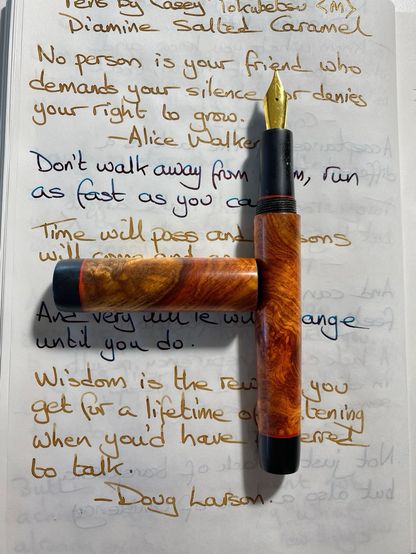 Pens by Casey Yokubetsu (M)
Diamine Salted Caramel
No person is your friend who
demands your silence or denies
your right to grow.
—Alice Walker
Don't walk away from m, run
as fast as you ca
Time will pass and sons
will come and
And very will ange
until you do.
Wisdom is the rew you
get for a lifetime o tening
when you'd have erred
to talk.
—Doug Larson.